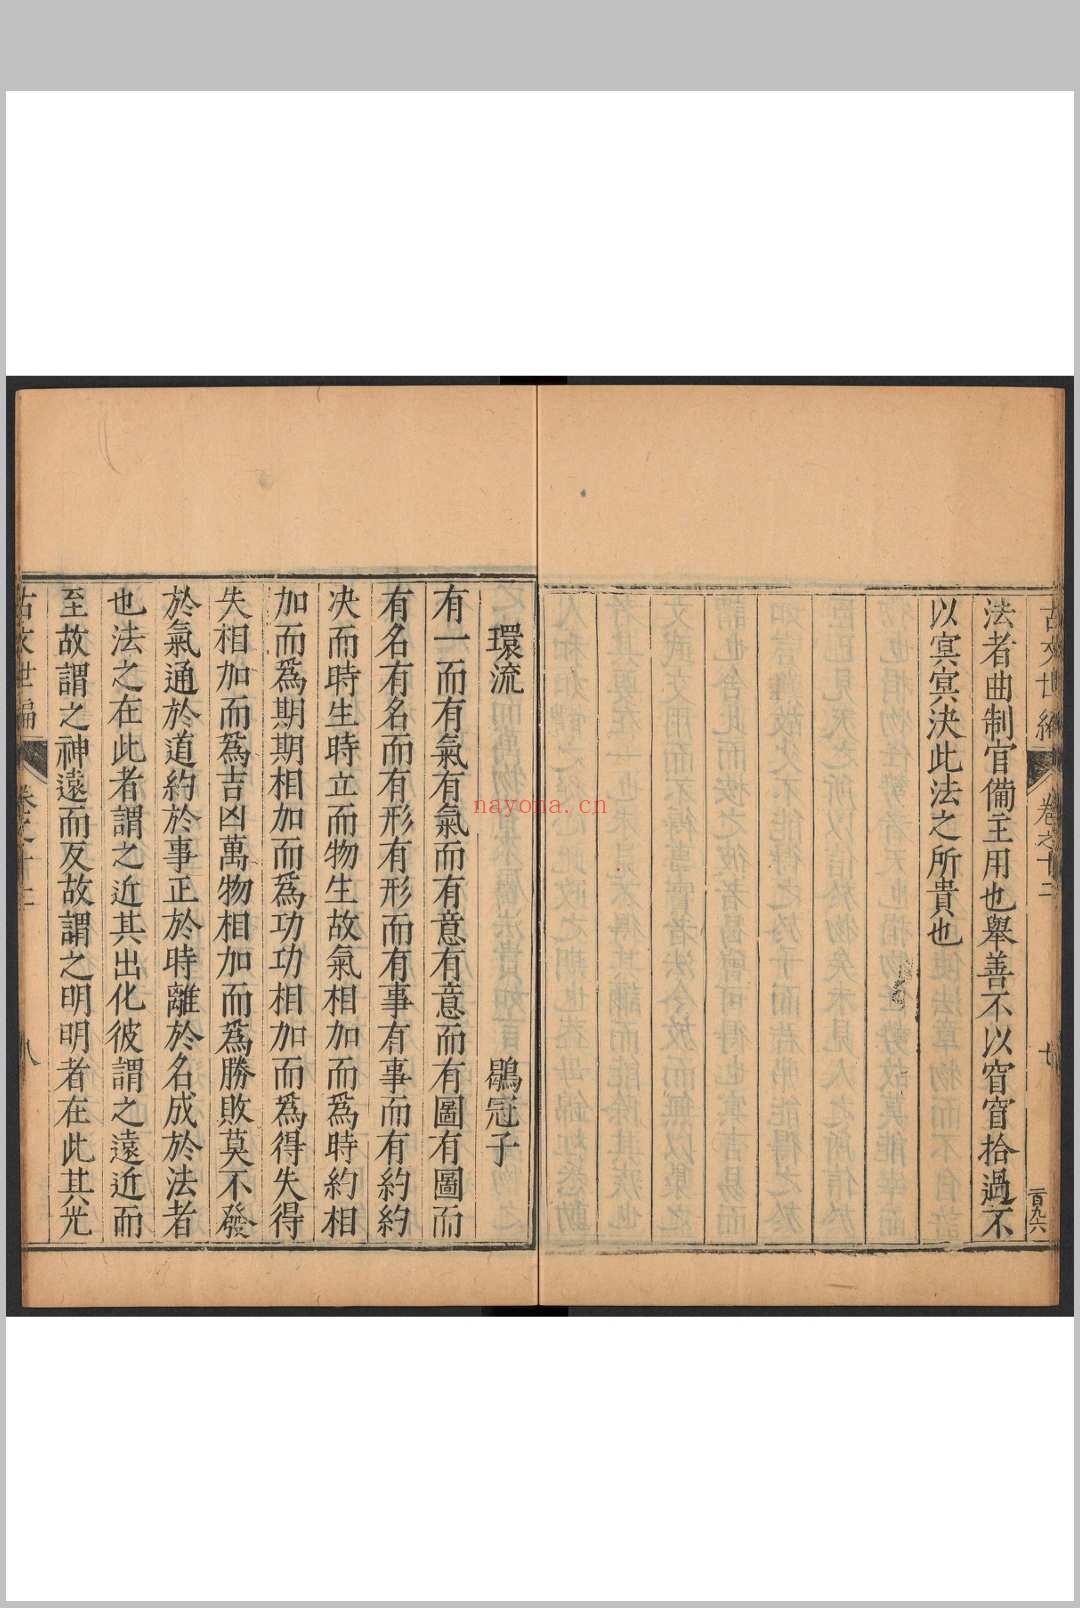 古文世編
卷之十二
廿
一百九六
法者曲制官備主用也舉善不以窅窅拾過不
以冥冥決此法之所貴也
環流
鶡冠子
有一而有氣有氣而有意有意而有圖有圖而
有名有名而有形有形而有事有事而有約約
决而時生時立而物生故氣相加而爲時約相
加而爲期期相加而爲功功相加而爲得失得
失相加而爲吉凶萬物相加而爲勝敗莫不發
於氣通於道約於事正於時離於名成於法者
也法之在此者謂之近其出化彼謂之遠近而
至故謂之神遠而反故謂之明明者在此其光
古文世編
nayona.cn